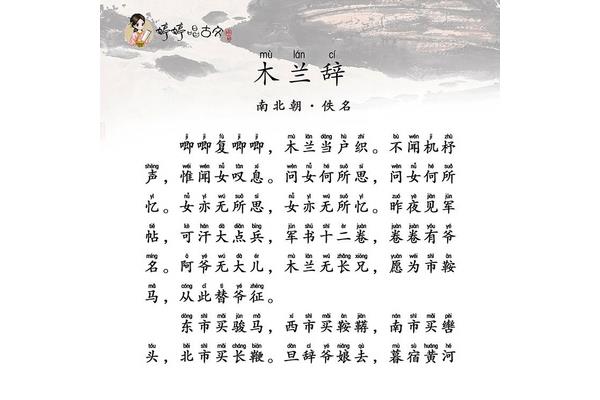 婷婷唱古文
mù lán cí
木兰辞
南北朝·佚名
唧唧复唧唧，木兰当户织。不闻机杼
声，惟闻女叹息。问女何所思，问女何所
忆。女亦无所思，女亦无所忆。昨夜见军
帖，可汗大点兵，军书十二卷，卷卷有爷
名。阿爷无大儿，木兰无长兄，愿为市鞍
马，从此替爷征。
东市买骏马，西市买鞍鞯，南市买辔
头，北市买长鞭。旦辞爷娘去，暮宿黄河